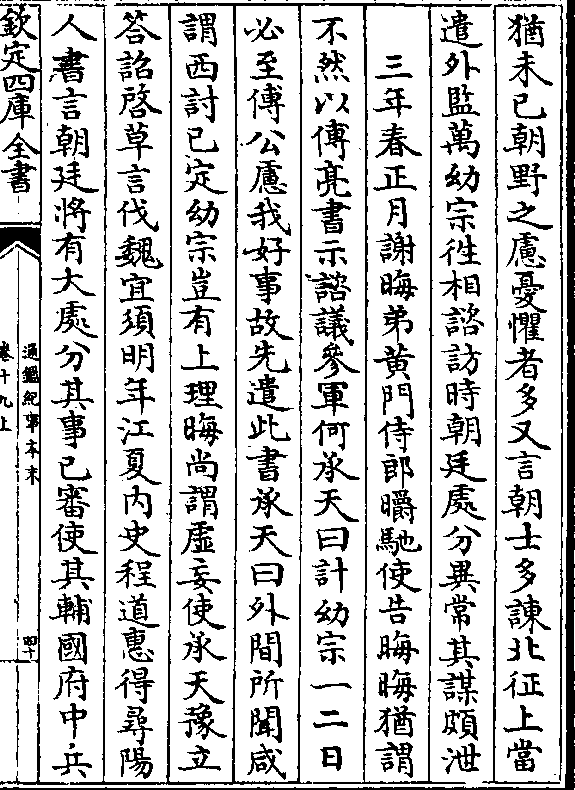 猶未已朝野之慮憂懼者多又言朝士多諫北征上當
遣外監萬幼宗徃相諮訪時朝廷處分異常其謀頗泄
三年春正月謝晦弟黄門侍郎㬭馳使告晦晦猶謂
不然以傅亮書示諮議參軍何承天曰計幼宗一二日
必至傅公慮我好事故先遣此書承天曰外間所聞咸
謂西討已定幼宗豈有上理晦尚謂虛妄使承天豫立
答詔啓草言伐魏宜須明年江夏内史程道惠得尋陽
人書言朝廷將有大處分其事已審使其輔國府中兵
欽定四庫全書
通鑑紀事本末
卷十九上
四十